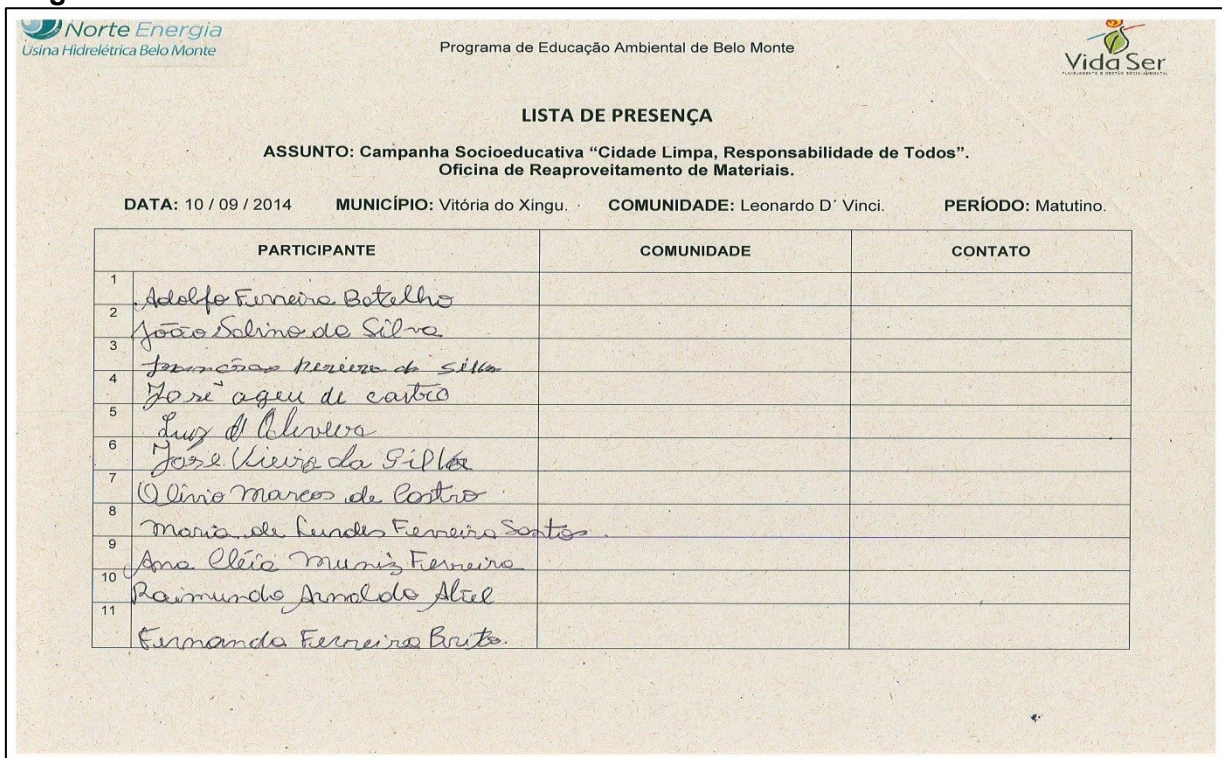 Norte Energia
Usina Hidrelétrica Belo Monte
Programa de Educação Ambiental de Belo Monte
Vida Ser
LISTA DE PRESENÇA
ASSUNTO: Campanha Socioeducativa “Cidade Limpa, Responsabilidade de Todos”.
Oficina de Reaproveitamento de Materiais.
DATA: 10 / 09 / 2014 MUNICÍPIO: Vitória do Xingu. COMUNIDADE: Leonardo D´ Vinci. PERÍODO: Matutino.
PARTICIPANTE COMUNIDADE CONTATO
1 Adolfo Ferreira Botelho
2 João Salino da Silva
3 pereira da silva
4 José ageu de castro
5 Luiz d Oliveira
6 José Vieira da Silva
7 Olivio Marcos de Castro
8 Maria de Lurdes Ferreira Santos
9 Ana Cléia Muniz Ferreira
10 Raimundo Arnaldo
11 Fernanda Ferreira Brito.